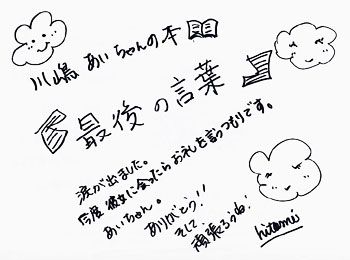 川嶋 あいちゃんの本
『最後の言葉』
涙が出ました。
今度 彼女に会ったらお礼を言うつもりです。
あいちゃん。
ありがとう!!
そして
頑張ろうね!
hitomi